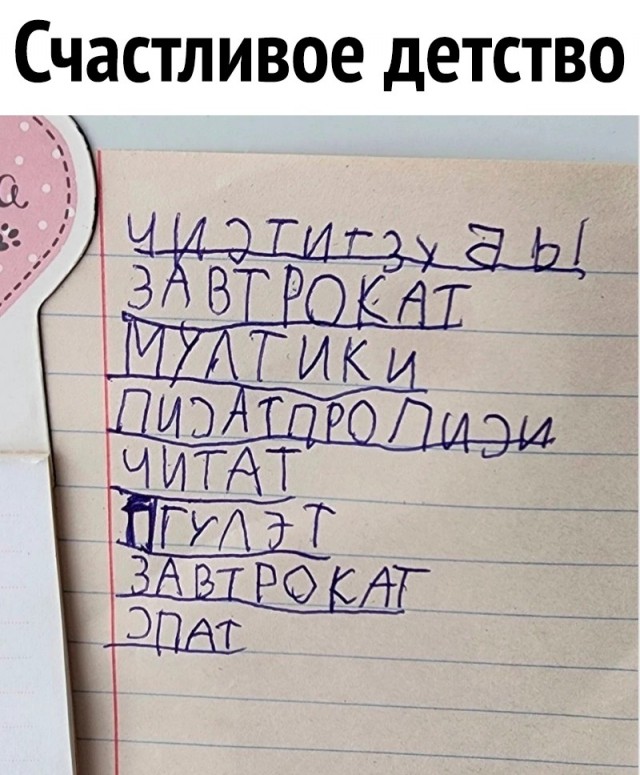 Счастливое детство
а
ЧИЭТИТЗУ ƋЫ
ЗАВТРОКАТ
МУЛТИКИ
ПИЭАТПРОПИЭИ
ЧИТАТ
ПГУЛЭТ
ЗАВТРОКАТ
ЭПАТ